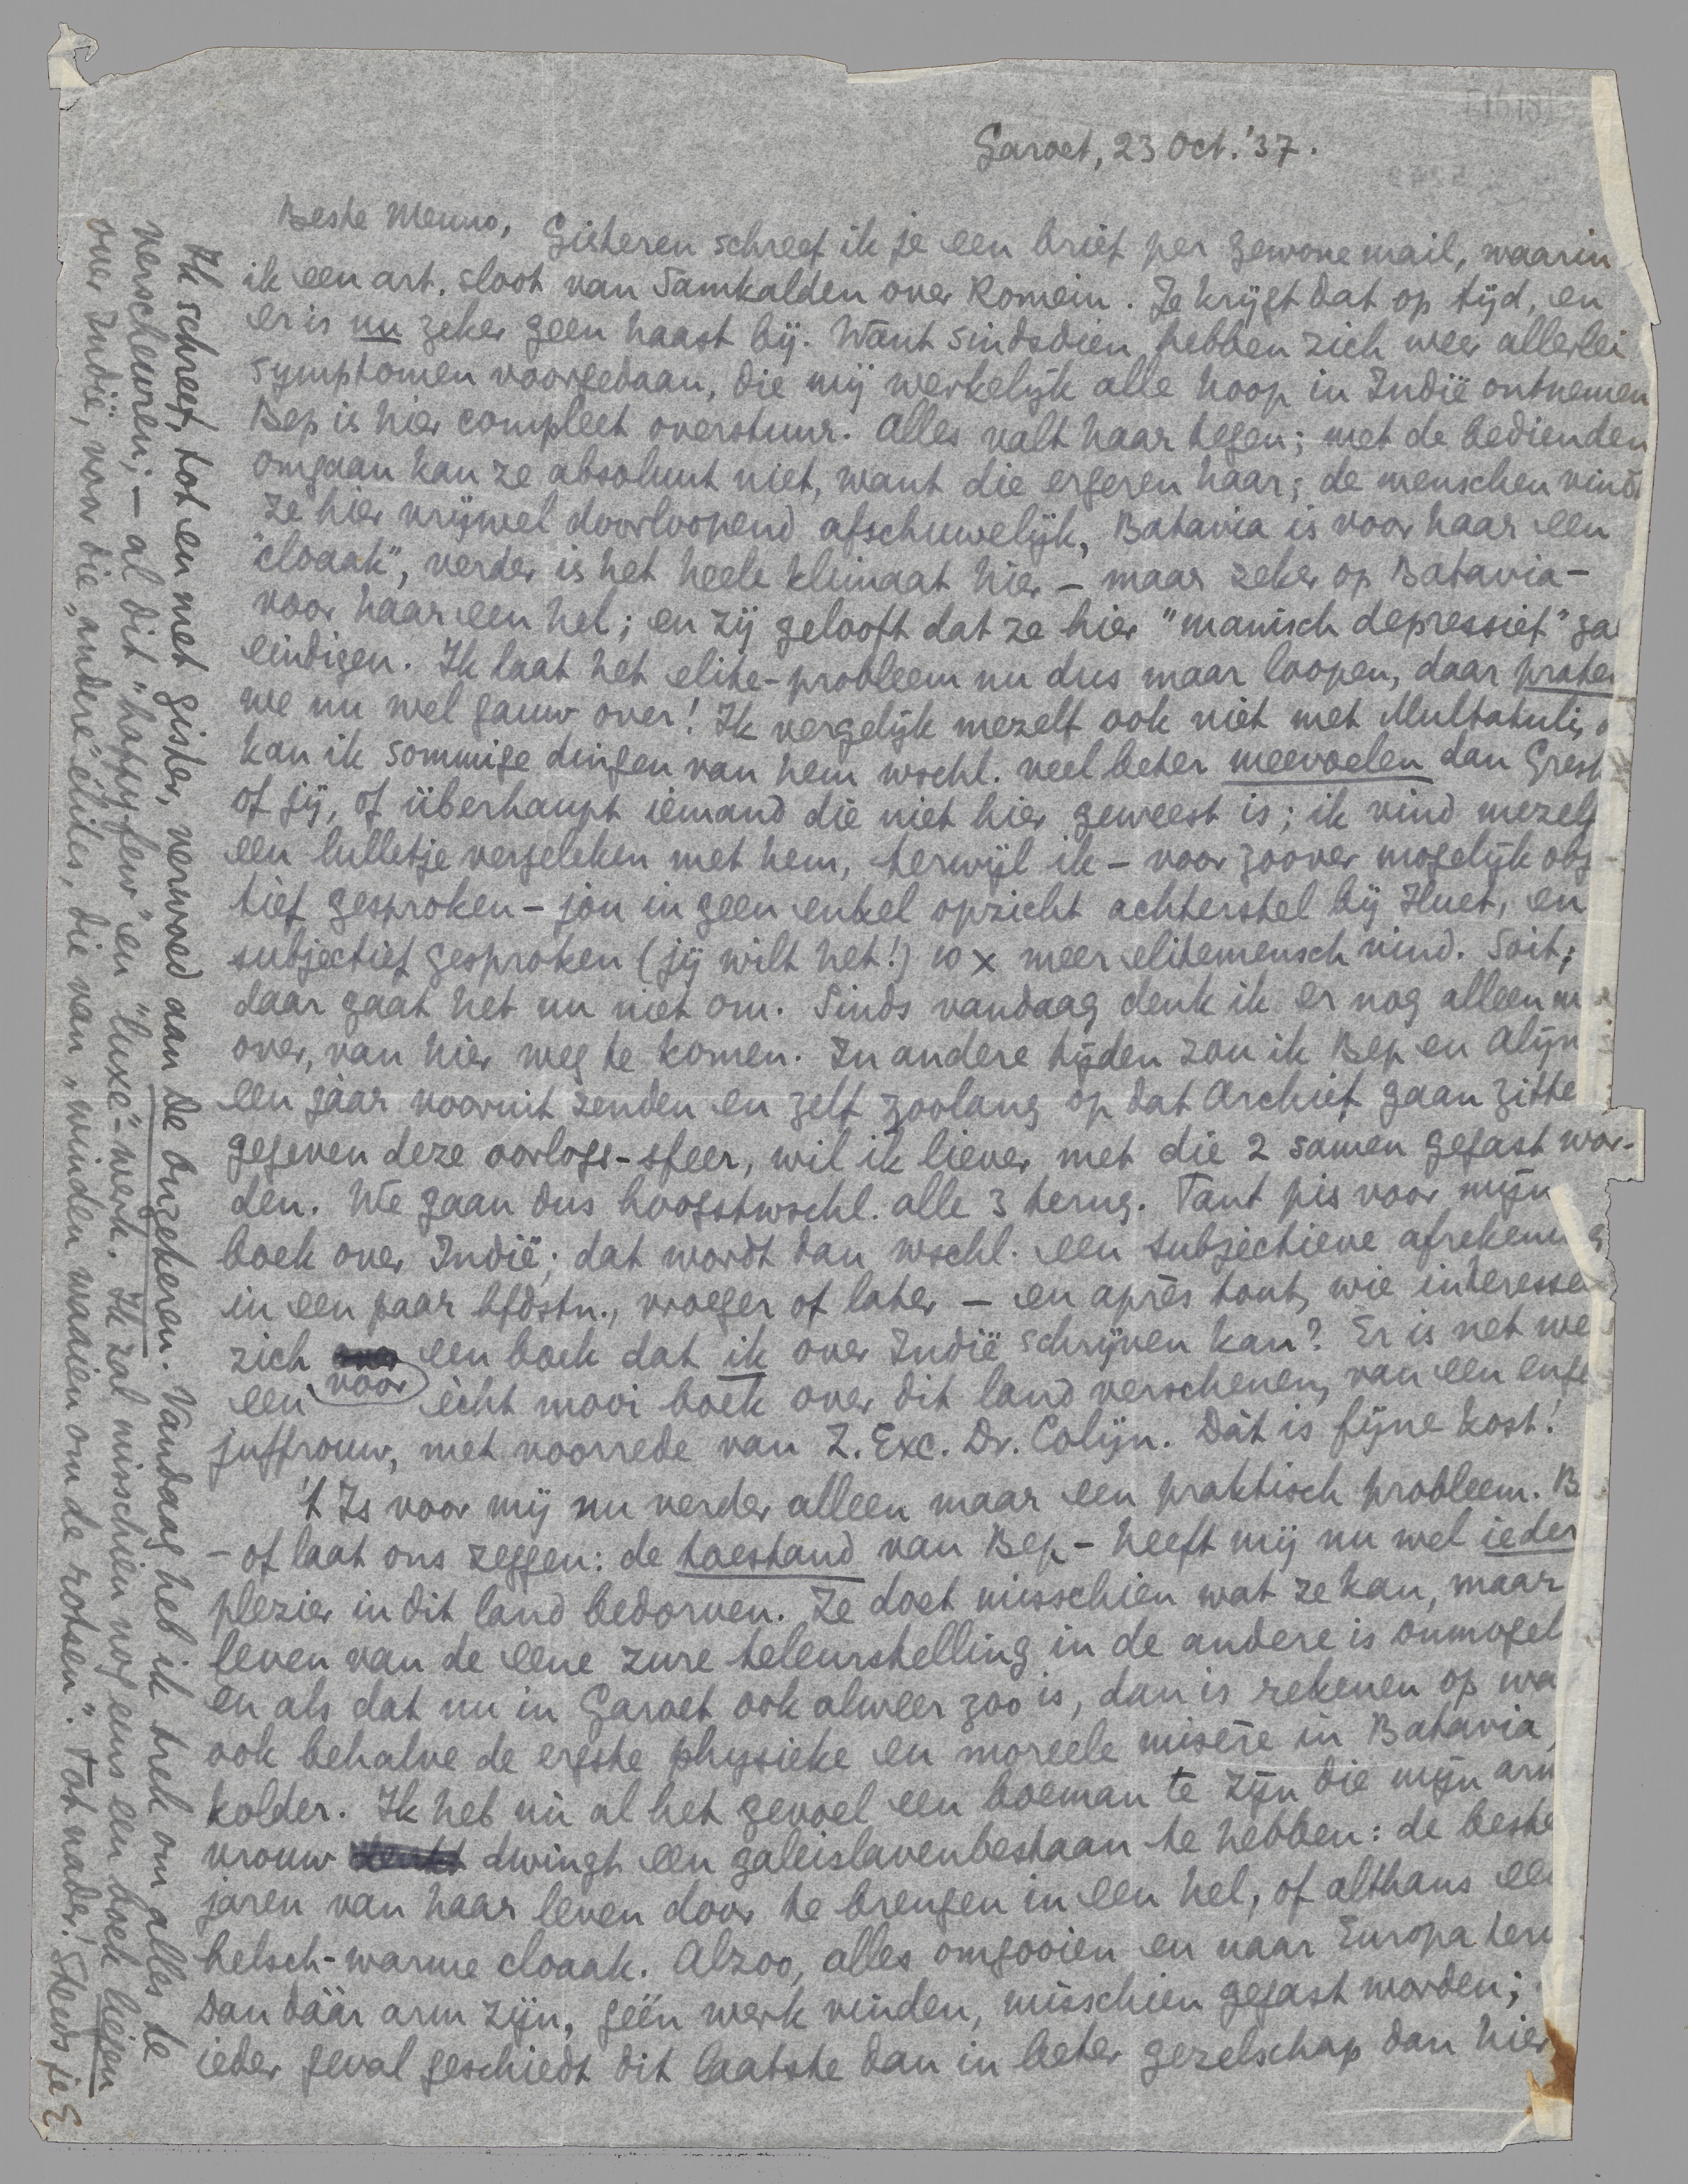 Garoet, 23 Oct. '37.
Beste Menno,
Gisteren schreef ik je een brief per gewone mail, waarin
ik een art. sloot van Samkalden over Romein. Je krijgt dat op tijd, en
er is nu zeker geen haast bij. Want sindsdien hebben zich weer allerlei
symptomen voorgedaan, die mij werkelijk alle hoop in Indië ontnemen
Bep is hier compleet overstuur. Alles valt haar tegen; met de bedienden
omgaan kan ze absoluut niet, want die ergeren haar; de menschen vindt
ze hier vrijwel doorloopend afschuwelijk, Batavia is voor haar een
"cloaak", verder is het heele klimaat hier – maar zeker op Batavia –
voor haar een hel; en zij gelooft dat ze hier "manisch depressief" ga
eindigen. Ik laat het elite-probleem nu dus maar loopen, daar praten
we nu wel gauw over! Ik vergelijk mezelf ook niet met Multatuli,
kan ik sommige dingen van hem wschl. veel beter meevoelen dan Gresh
of jij, of überhaupt iemand die niet hier geweest is; ik vind mezelf
een lulletje vergeleken met hem, terwijl ik – voor zoover mogelijk obj
tief gesproken – jou in geen enkel opzicht achterstel bij Huet, en
subjectief gesproken (jij wilt het!) 10 x meer elitemensch vind. Soit;
daar gaat het nu niet om. Sinds vandaag denk ik er nog alleen m
over, van hier weg te komen. In andere tijden zou ik Bep en Alijn
een jaar vooruit zenden en zelf zoolang op dat Archief gaan zitte
gegeven deze oorlogs-sfeer, wil ik liever met die 2 samen gegast wor-
den. We gaan dus hoogstwschl. alle 3 terug. Tant pis voor mijn
boek over Indië; dat wordt dan wschl. een subjectieve afrekening
in een paar hfdstn., vroeger of later – en après tout, wie interesse
zich voor een boek dat ik over Indië schrijven kan? Er is net we
een ècht mooi boek over dit land verschenen, van een enge
juffrouw, met voorrede van Z. Exc. Dr. Colijn. Dàt is fijne kost!
't Is voor mij nu verder alleen maar een praktisch probleem. B
– of laat ons zeggen: de toestand van Bep – heeft mij nu wel ieder
plezier in dit land bedorven. Ze doet misschien wat ze kan, maar
leven van de eene zure teleurstelling in de andere is onmogel
en als dat nu in Garoet ook alweer zoo is, dan is rekenen op wa
ook behalve de ergste physieke en moreele misère in Batavia,
kolder. Ik heb nù al het gevoel een boeman te zijn die mijn arm
vrouw dwingt een galeislavenbestaan te hebben: de beste
jaren van haar leven door te brengen in een hel, of althans een
helsch-warme cloaak. Alzoo, alles omgooien en naar Europa teru
Dan dáár arm zijn, géén werk vinden, misschien gegast worden;
ieder geval geschiedt dit laatste dan in beter gezelschap dan hier
Ik schreef, tot en met gister, verwoed aan De Onzekeren. Vandaag heb ik trek om alles te
verscheuren; – al dit "happy few" en "luxe"-werk. Ik zal misschien nog eens een boek hijgen
over Indië, voor die "andere" élites, die van "winden waaien om de rotsen". Tot nader! Steeds je E